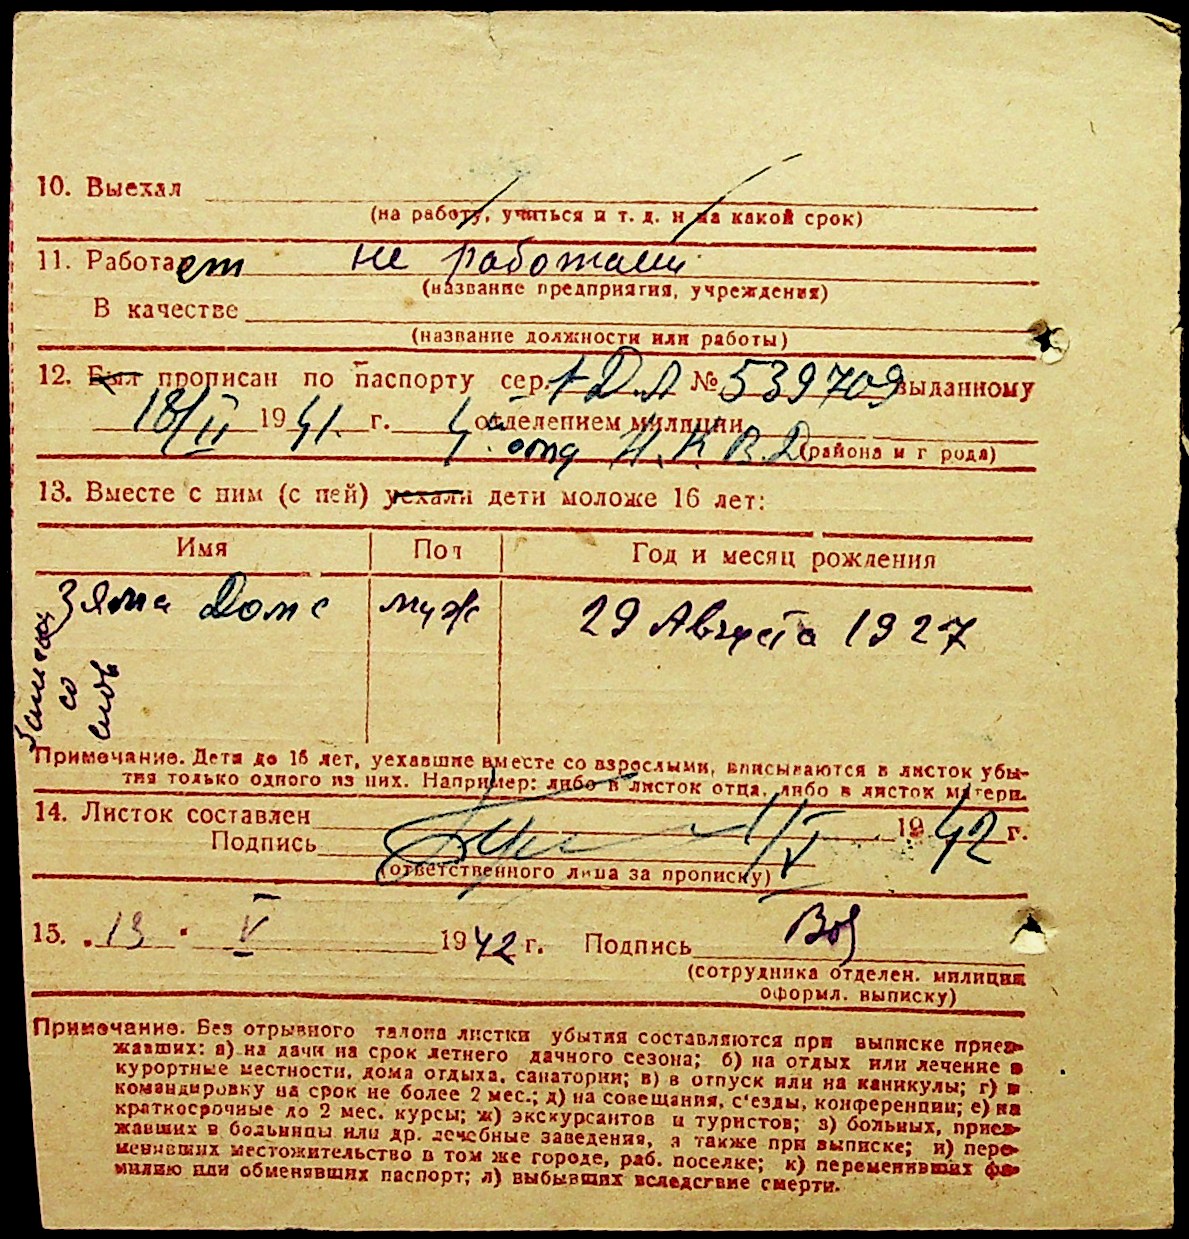 10. Выехал
(на работу, учиться и т. д. и на какой срок)
11. Работает не работает
(название предприятия, учреждения)
В качестве
(название должности или работы)
12. Был прописан по паспорту сер. № 539709 выданному
18/II 1941 г. 4 отделением милиции
отд Н.К.В.Д. (района и города)
13. Вместе с ним (с ней) уехали дети моложе 16 лет:
Имя Пол Год и месяц рождения
Зяма Дома муж 29 Августа 1927
Записан
со
слов
Примечание. Дети до 16 лет, уехавшие вместе со взрослыми, вписываются в листок убы-
тия только одного из них. Например: либо в листок отца, либо в листок матери.
14. Листок составлен 1/V 1942 г.
Подпись
(ответственного лица за прописку)
15. 13 V 1942 г. Подпись
(сотрудника отделен. милиции
оформл. выписку)
Примечание. Без отрывного талона листки убытия составляются при выписке приез-
жавших: а) на дачи на срок летнего дачного сезона; б) на отдых или лечение в
курортные местности, дома отдыха, санатории; в) в отпуск или на каникулы; г) в
командировку на срок не более 2 мес.; д) на совещания, с'езды, конференции; е) на
краткосрочные до 2 мес. курсы; ж) экскурсантов и туристов; з) больных, приез-
жавших в больницы или др. лечебные заведения, а также при выписке; и) пере-
менивших местожительство в том же городе, раб. поселке; к) переменивших фа-
милию или обменявших паспорт; л) выбывших вследствие смерти.